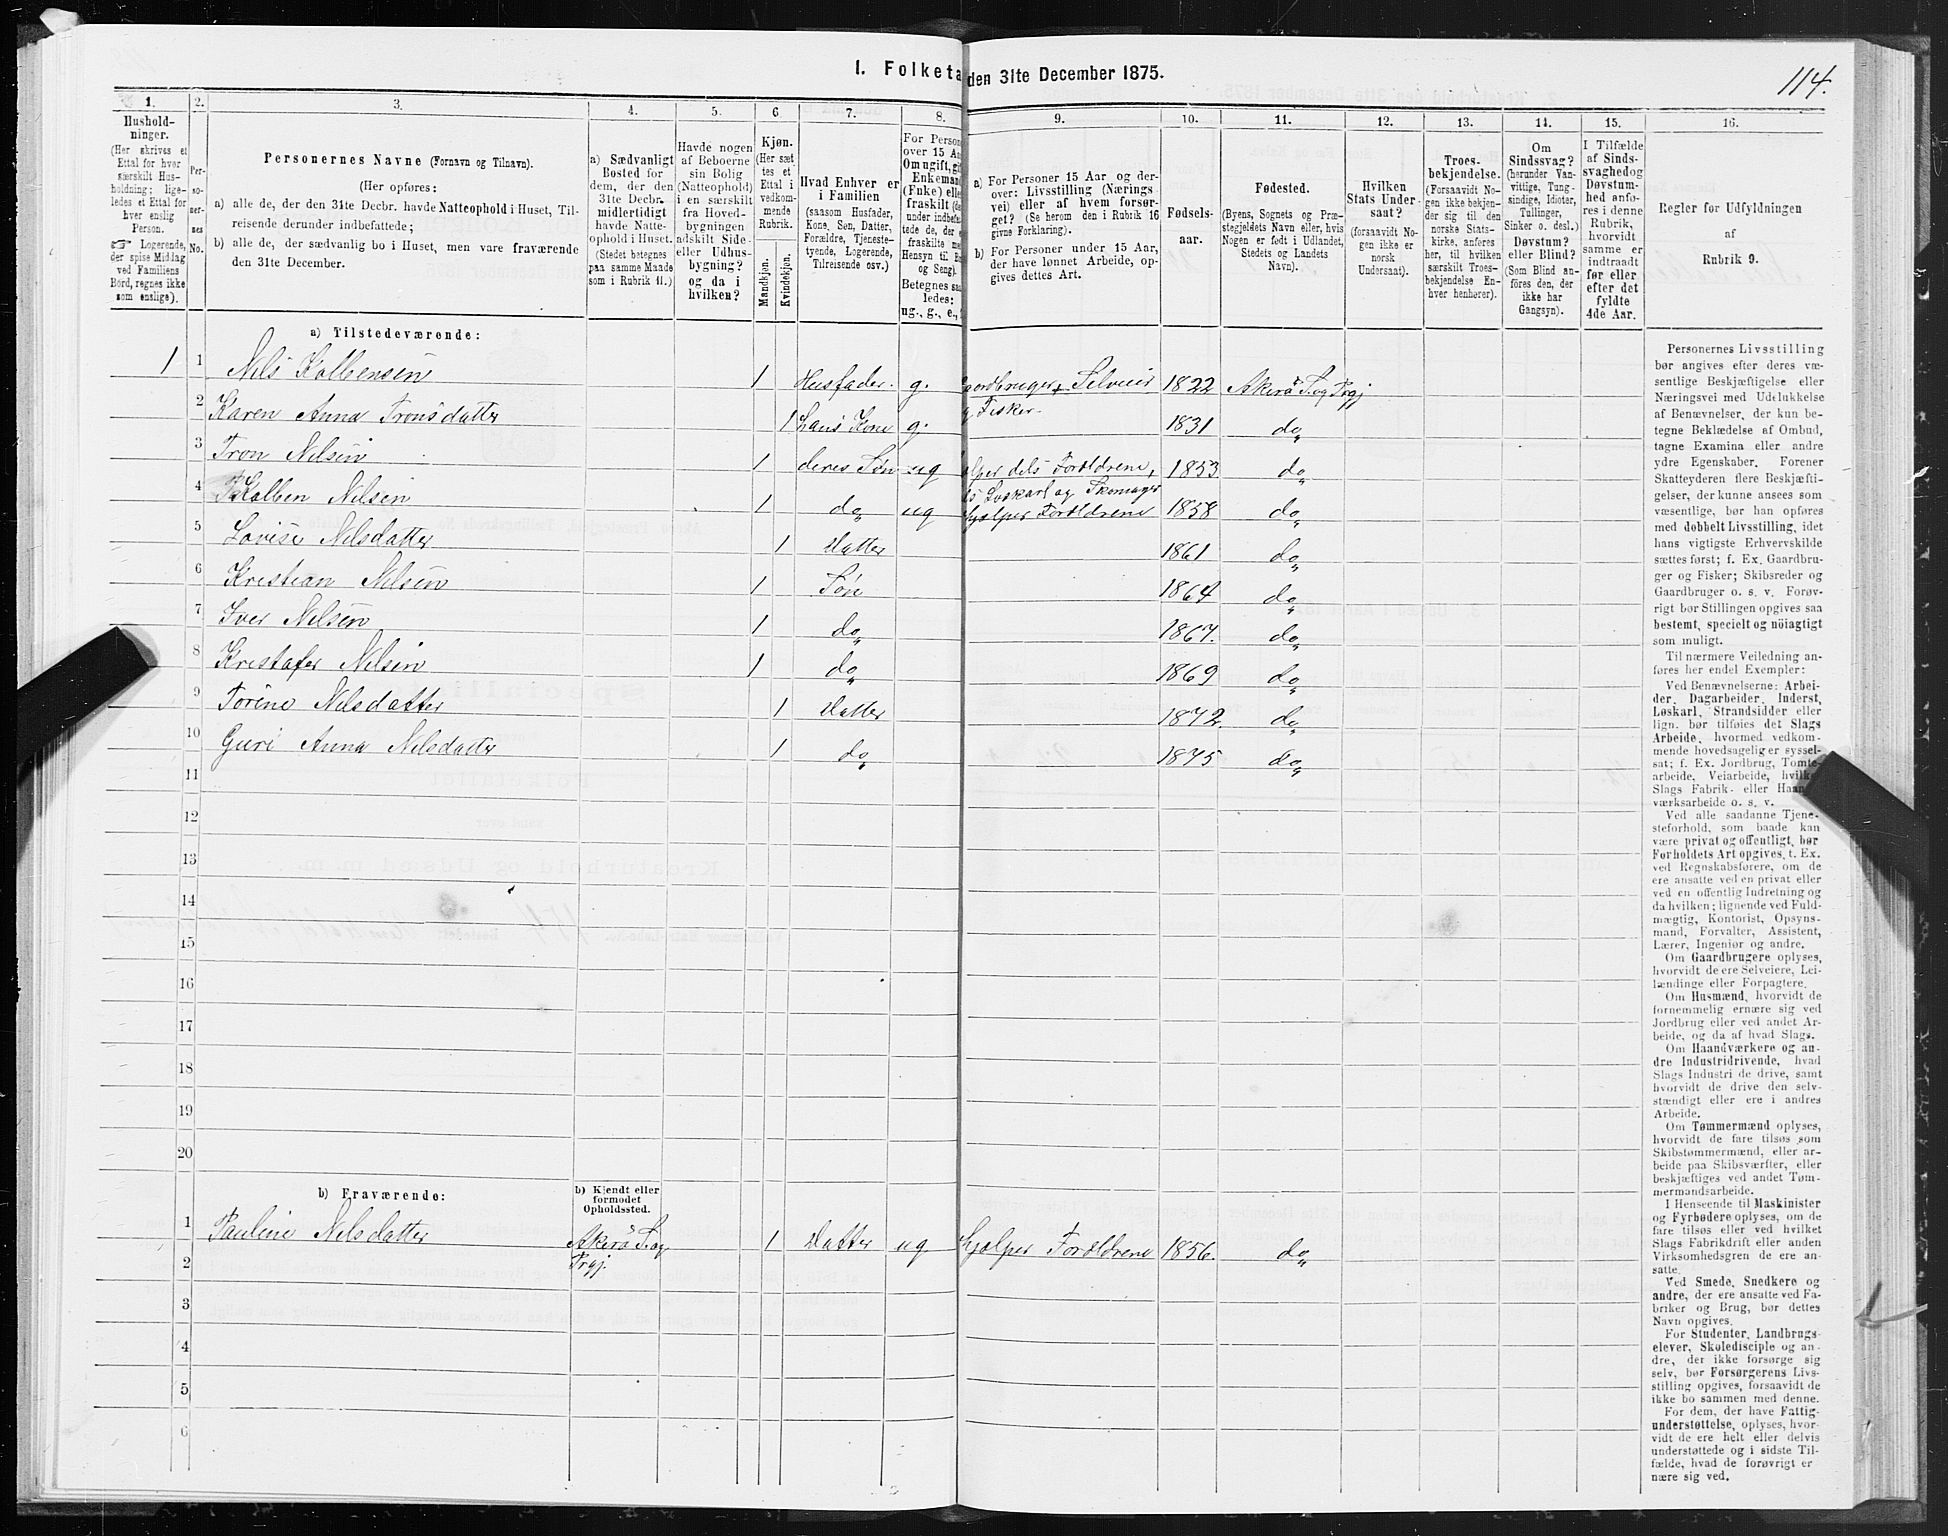 I. Folketa den 31te December 1875.
114.
1.
Hushold-
ninger.
(Her skrives et
Ettal for hver
særskilt Hus-
holdning; lige-
ledes et Ettal for
hver enslig
Person.
☞ Logerende,
der spise Middag
ved Familiens
Bord, regnes ikke
som enslige).
2.
Per-
so-
ner-
nes
No.
3.
Personernes Navne (Fornavn og Tilnavn).
(Her opføres:
a) alle de, der den 31te Decbr. havde Natteophold i Huset, Til-
reisende derunder indbefattede;
b) alle de, der sædvanlig bo i Huset, men vare fraværende
den 31te December.
4.
a) Sædvanligt
Bosted for
dem, der den
31te Decbr.
midlertidigt
havde Natte-
ophold i Huset.
(Stedet betegnes
paa samme Maade
som i Rubrik 11.)
5.
Havde nogen
af Beboerne
sin Bolig
(Natteophold)
i en særskilt
fra Hoved-
bygningen
adskilt Side-
eller Udhus-
bygning?
og da i
hvilken?
6
Kjøn.
(Her sæt-
tes et
Ettal i
vedkom-
mende
Rubrik.
Mandkjøn.
Kvindekjøn.
7.
Hvad Enhver er
i Familien
(saasom Husfader,
Kone, Søn, Datter,
Forældre, Tjeneste-
tyende, Logerende,
Tilreisende osv.)
8.
For Persone
over 15 Aa
Om ugift, gif
Enkemand
(Enke) elle
fraskilt (de
under indbefat-
tede de, der e
fraskilte me
Hensyn til Bo
og Seng).
Betegnes saa
ledes:
ug., g., e.,
9.
a) For Personer 15 Aar og der-
over: Livsstilling (Nærings-
vei) eller af hvem forsør-
get? (Se herom den i Rubrik 16
givne Forklaring).
b) For Personer under 15 Aar,
der have lønnet Arbeide, op-
gives dettes Art.
10.
Fødsels-
aar.
11.
Fødested.
(Byens, Sognets og Præ-
stegjeldets Navn eller, hvis
Nogen er født i Udlandet,
Stedets og Landets
Navn).
12.
Hvilken
Stats Under-
saat?
(forsaavidt No-
gen ikke er
norsk
Undersaat).
13.
Troes-
bekjendelse.
(Forsaavidt No-
gen ikke bekjen-
der sig til den
norske Stats-
kirke, anføres
her, til hvilken
særskilt Troes-
bekjendelse En-
hver henhører).
14.
Om
Sindssvag?
(herunder Van-
vittige, Tung-
sindige, Idioter,
Tullinger,
Sinker o. desl.)
Døvstum?
eller Blind?
(Som Blind an-
føres den, der
ikke har
Gangsyn).
15.
I Tilfælde
af Sinds-
svaghed og
Døvstum-
hed anføres
i denne
Rubrik,
hvorvidt
samme er
indtraadt
før eller
efter det
fyldte
4de Aar.
16.
Regler for Udfyldningen
af
Rubrik 9.
a) Tilstedeværende:
1 1 Nils Kolbensen 1 Husfader. g. Gaardbruger Selveier 1822 Akerø S. og Prgj
og Fisker.
2 Karen Anna Tronsdatter 1 hans Kone g. 1831 do„
3 Tron Nilsen 1 deres Søn ug 1853 do„
hjælper dels Forældrene,
dels Løskarl og Skomager
4 Kolben Nilsen 1 do„ ug hjælper Forældrene 1858 do„
5 Lovise Nilsdatter 1 Datter 1861 do„
6 Kristian Nilsen 1 Søn 1864 do„
7 Iver Nilsen 1 do„ 1867. do„
8 Kristofer Nilsen 1 do„ 1869 do„
9 Torine Nilsdatter 1 Datter 1872. do„
10 Guri Anna Nilsdatter 1 do„ 1875 do„
11
12
13
14
15
16
17
18
19
20
b) Fraværende:
b) Kjendt eller
formodet
Opholdssted.
1 Pauline Nilsdatter Akerø S. og 1 Datter ug hjælper Forældrene 1856. do„
Prgj.
2
3
4
5
6
Personernes Livsstilling
bør angives efter deres væ-
sentlige Beskjæftigelse eller
Næringsvei med Udelukkelse
af Benævnelser, der kun be-
tegne Beklædelse af Ombud,
tagne Examina eller andre
ydre Egenskaber. Forener
Skatteyderen flere Beskjæfti-
gelser, der kunne ansees som
væsentlige, bør han opføres
med dobbelt Livsstilling, idet
hans vigtigste Erhvervskilde
sættes først; f. Ex. Gaardbru-
ger og Fisker; Skibsreder og
Gaardbruger o. s. v. Forøv-
rigt bør Stillingen opgives saa
bestemt, specielt og nöiagtigt
som muligt.
Til nærmere Veiledning an-
føres her endel Exempler:
Ved Benævnelserne: Arbei-
der, Dagarbeider, Inderst,
Løskarl, Strandsidder eller
lign. bør tilføies det Slags
Arbeide, hvormed vedkom-
mende hovedsagelig er syssel-
sat; f. Ex. Jordbrug, Tomte-
arbeide, Veiarbeide, hvilket
Slags Fabrik- eller Haand-
værksarbeide o. s. v.
Ved alle saadanne Tjene-
steforhold, som baade kan
være privat og offentligt, bør
Forholdets Art opgives, t. Ex.
ved Regnskabsførere, om de
ere ansatte ved en privat eller
ved en offentlig Indretning og
da hvilken; lignende ved Fuld-
mægtig, Kontorist, Opsyns-
mand, Forvalter, Assistent,
Lærer, Ingeniør og andre.
Om Gaardbrugere oplyses,
hvorvidt de ere Selveiere, Lei-
lændinge eller Forpagtere.
Om Husmænd, hvorvidt de
fornemmelig ernære sig ved
Jordbrug eller ved andet Ar-
beide, og da af hvad Slags.
Om Haandværkere og an-
dre Industridrivende, hvad
Slags Industri de drive, samt
hvorvidt de drive den selv-
stændigt eller ere i andres
Arbeide.
Om Tømmermænd oplyses,
hvorvidt de fare tilsøs som
Skibstømmermænd, eller ar-
beide paa Skibsværfter, eller
beskjæftiges ved andet Tøm-
mermandsarbeide.
I Henseende til Maskinister
og Fyrbødere oplyses, om de
fare tilsøs eller ved hvilket
Slags Fabrikdrift eller anden
Virksomhedsgren de ere an-
satte.
Ved Smede, Snedkere og
andre, der ere ansatte ved Fa-
briker og Brug, bør dettes
Navn opgives.
For Studenter, Landbrugs-
elever, Skoledisciple og an-
dre, der ikke forsørge sig
selv, bør Forsørgerens Livs-
stilling opgives, forsaavidt de
ikke bo sammen med denne.
For dem, der have Fattig-
understøttelse, oplyses, hvor-
vidt de ere helt eller delvis
understøttede og i sidste Til-
fælde, hvad de forøvrigt er
nære sig ved.